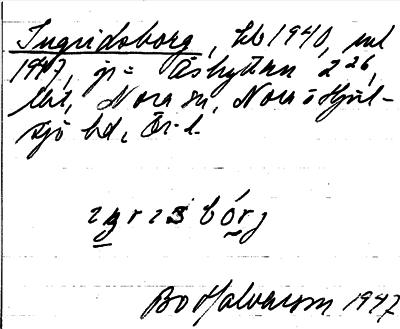 Ingridsborg, hb 1940, enl
1947, gs = Åshyttan 2 26,
lht, Nora sn, Nora o Hjul-
sjö hd, Ör. l.
Bo Halvarson 1947